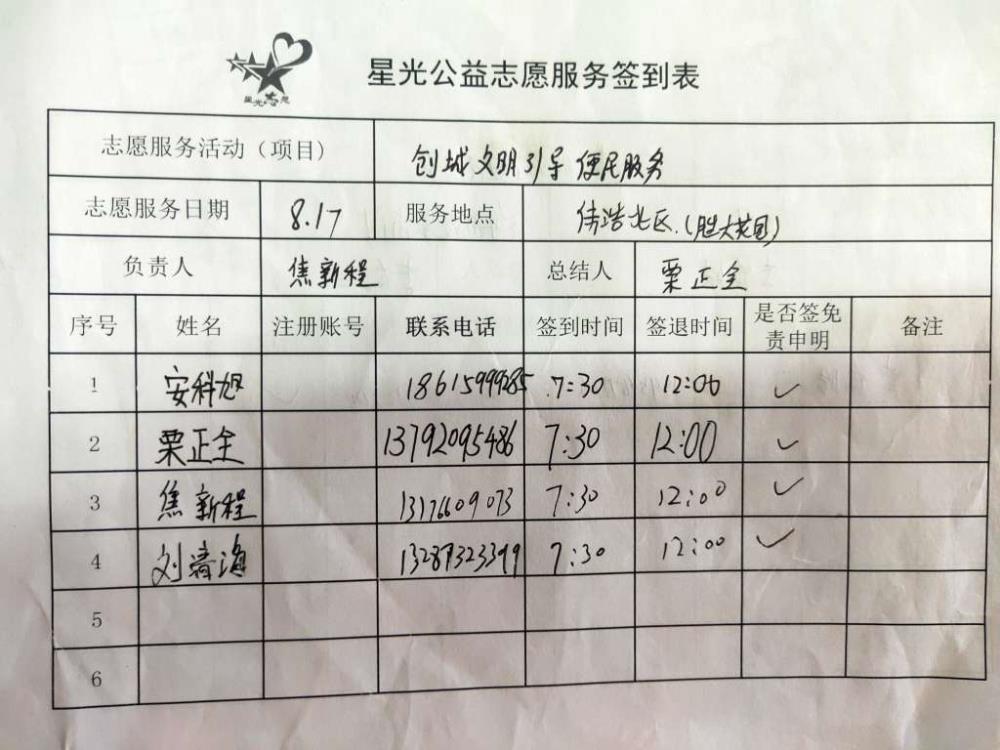 星光志愿
星光公益志愿服务签到表
志愿服务活动（项目） 创城文明引导 便民服务
志愿服务日期 8.17 服务地点 伟浩北区.(胜大花园)
负责人 焦新程 总结人 栗正全
序号 姓名 注册账号 联系电话 签到时间 签退时间 是否签免责申明 备注
1 安科旭 18615999285 7:30 12:00 ✓
2 栗正全 13792095486 7:30 12:00 ✓
3 焦新程 13176609073 7:30 12:00 ✓
4 刘 海 13287323399 7:30 12:00 ✓
5
6